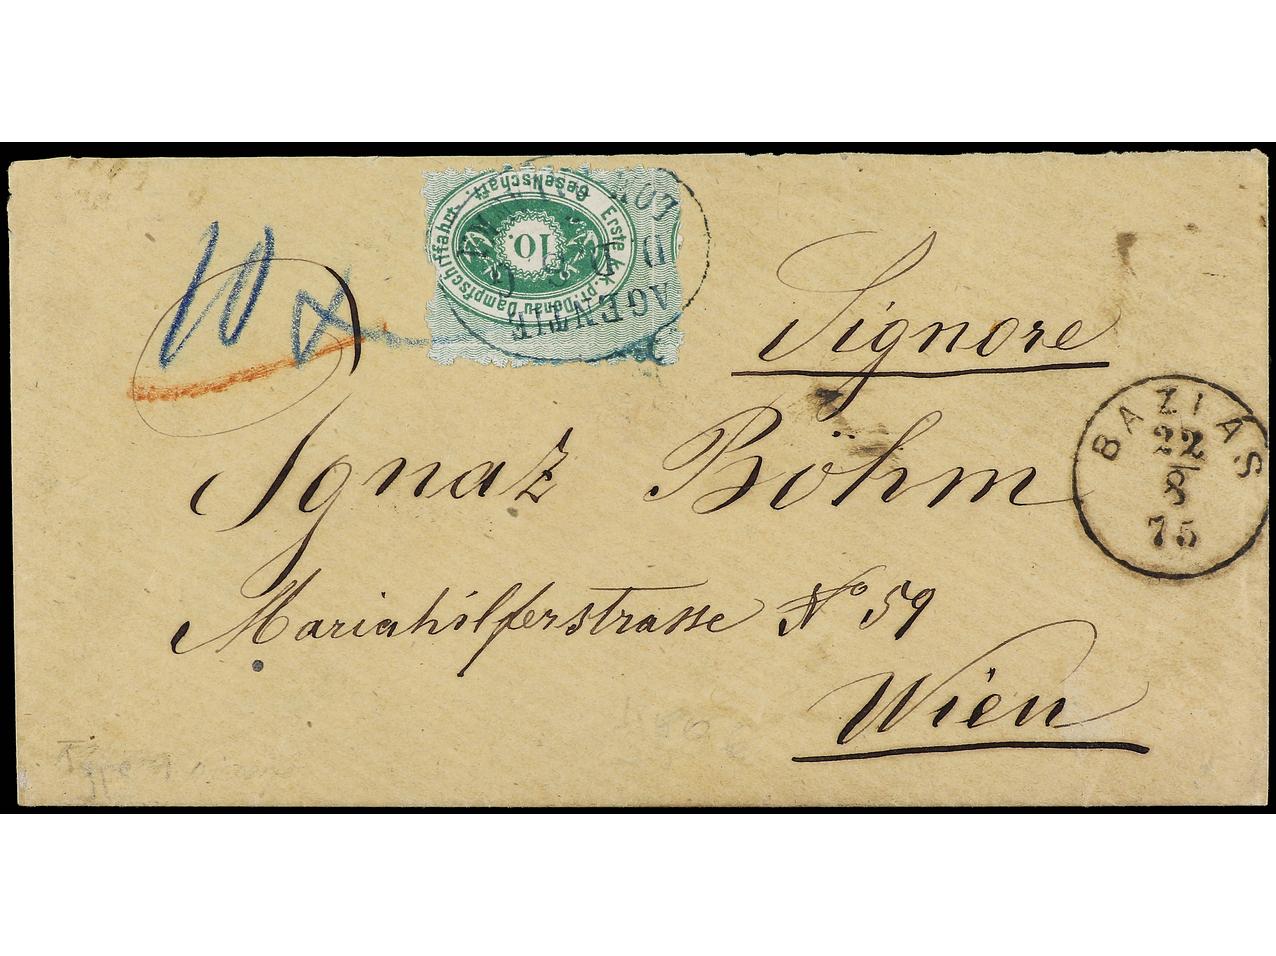 10 x
Erste k.k. pr. Donau Dampfschiffahrt.
Gesellschaft.
10.
D D S G
AGENZIE
Signore
Ignaz Böhm
Mariahilferstrasse No 59
Wien
BAZIAS
22
8
75